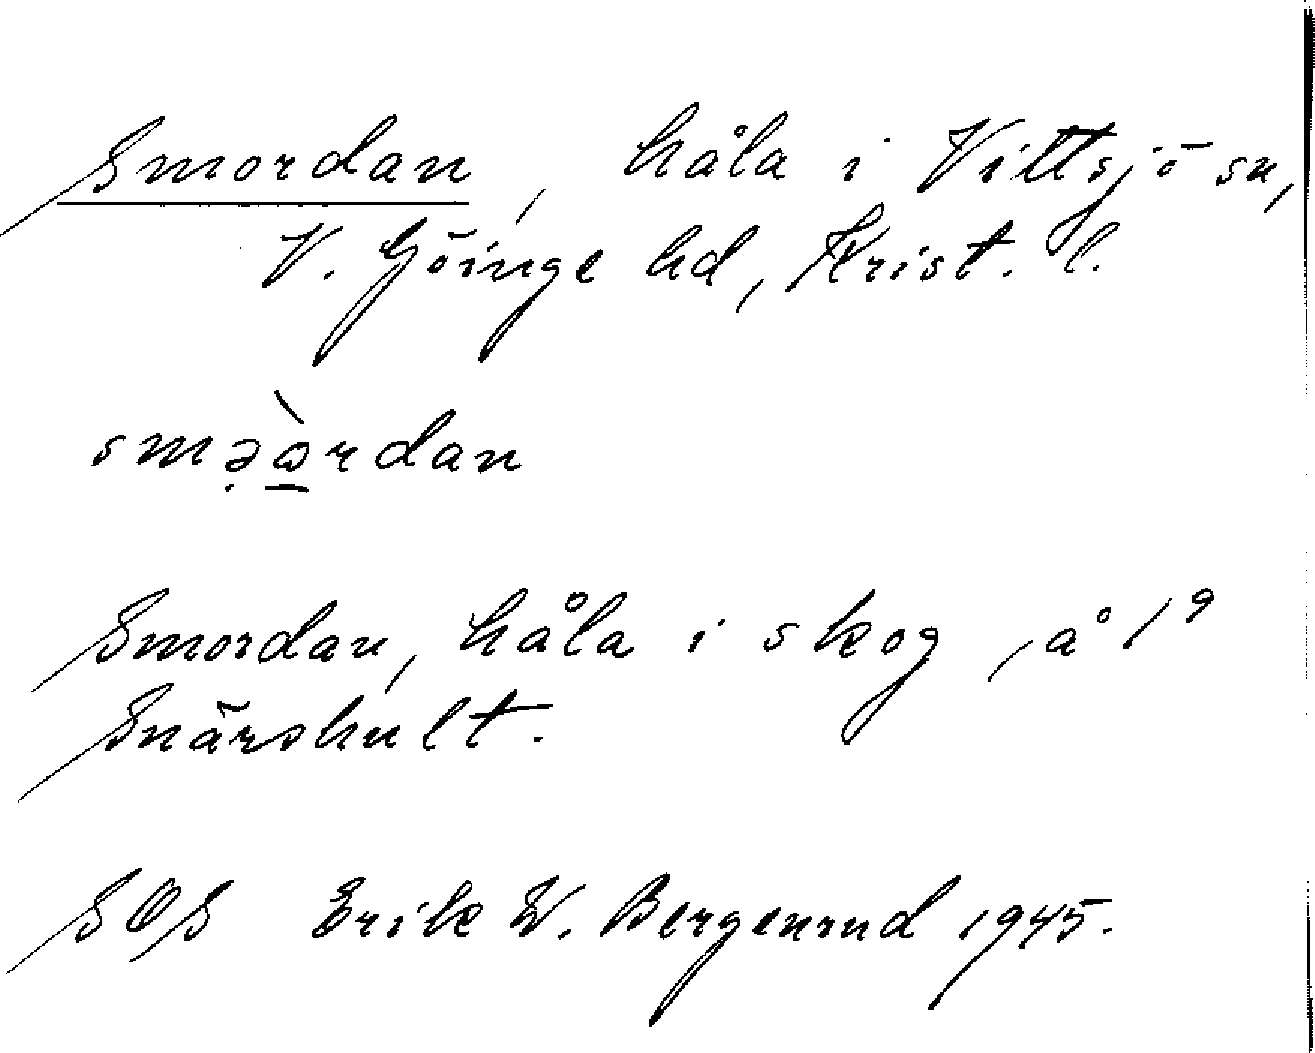 Smordan, håla i Vittsjö sn,
V. Göinge hd, Krist. l.
smə̣ὼ̲rdan
Smordan, håla i skog, å 1⁹
Snärshult.
SOS Erik W. Bergenrud 1945.